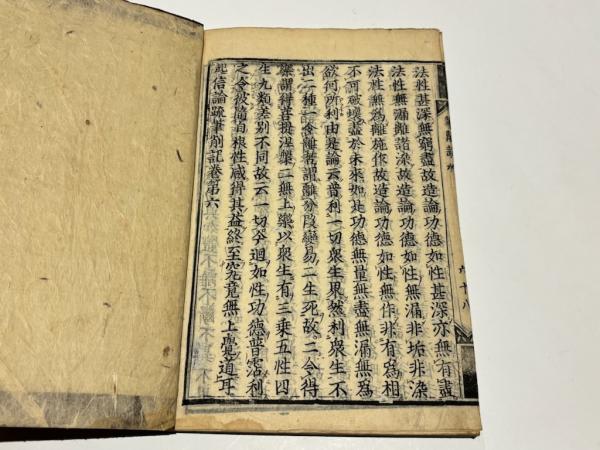 法性甚深無窮盡故造論功德如性甚深亦無有盡
法性無漏離諸染故造論功德如性無漏非垢非染
法性無爲離施作故造論功德如性無作非有爲相
不可破壞盡於未來如此功德無量無盡無漏無爲
欲何所利由是論云普利一切衆生界然利衆生不
出二種一令離苦謂離分段變易二生死故二令得
樂謂得菩提涅槃二無上樂以衆生有三乘五性四
生九類差別不同故云一切今迴如性功德普霑利
之令彼隨自根性咸得其益終至究竟無上覺道耳
起信論疏筆削記卷第六